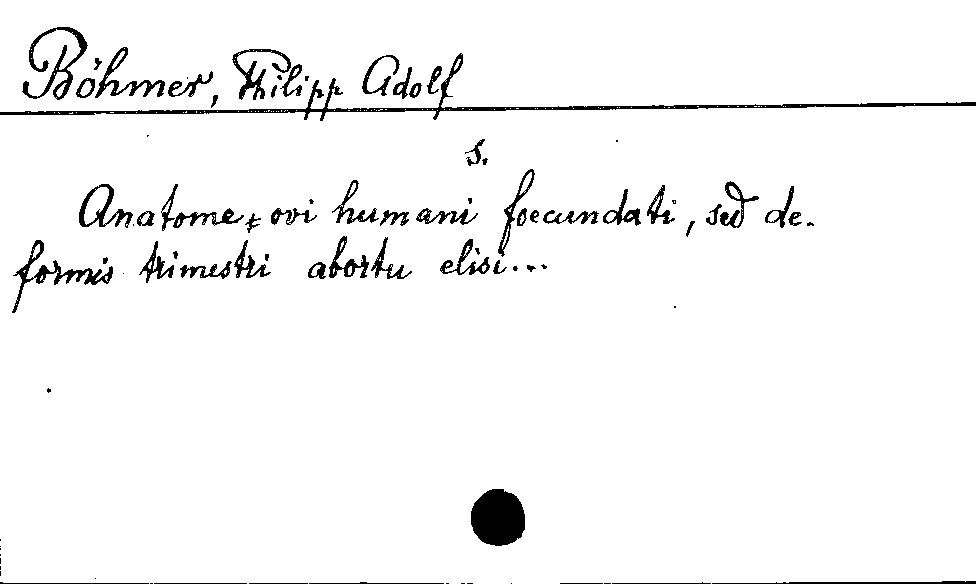 Böhmer, Philipp Adolf
s.
Anatome ovi humani foecundati, sed de-
formis trimestri abortu elisi...